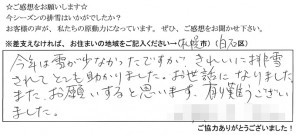 ☆ご感想をお願いします☆
今シーズンの排雪はいかがでしたか？
お客様の声が、私たちの原動力になっています。ぜひ、ご感想をお聞かせ下さい。
※差支えなければ、お住まいの地域をご記入ください→（札幌市）（白石区）
今年は雪が少なかったですが、きれいに排雪
されてとても助かりました。お世話になりました。
また、お願いすると思います。有り難うござい
ました。
ご協力ありがとうございました！